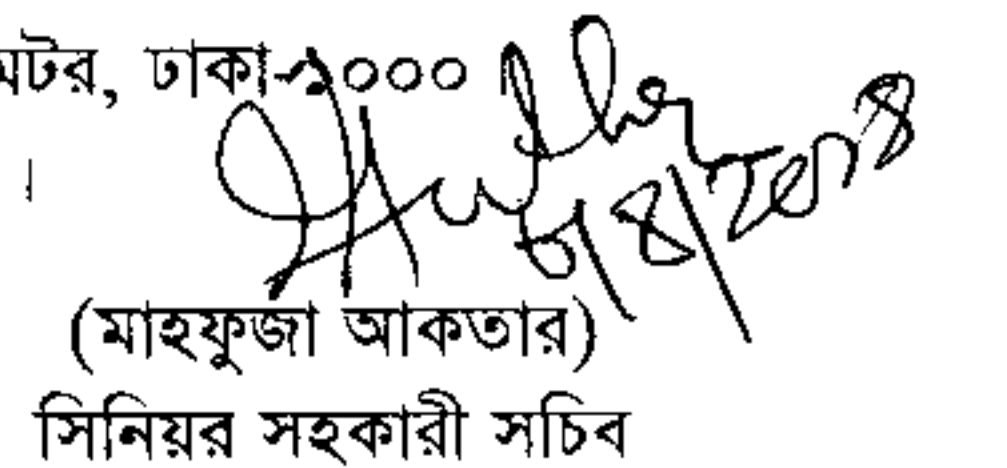 মটর, ঢাকা-১০০০
।
(মাহফুজা আকতার)
সিনিয়র সহকারী সচিব